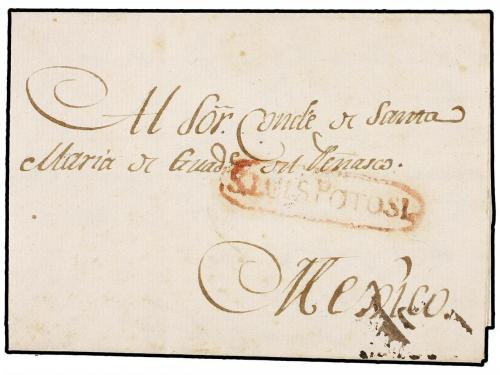 Al Sõr. Conde de Santa
Maria de Guadᵉ del Peñasco.
S. LUIS POTOSI
Mexico.